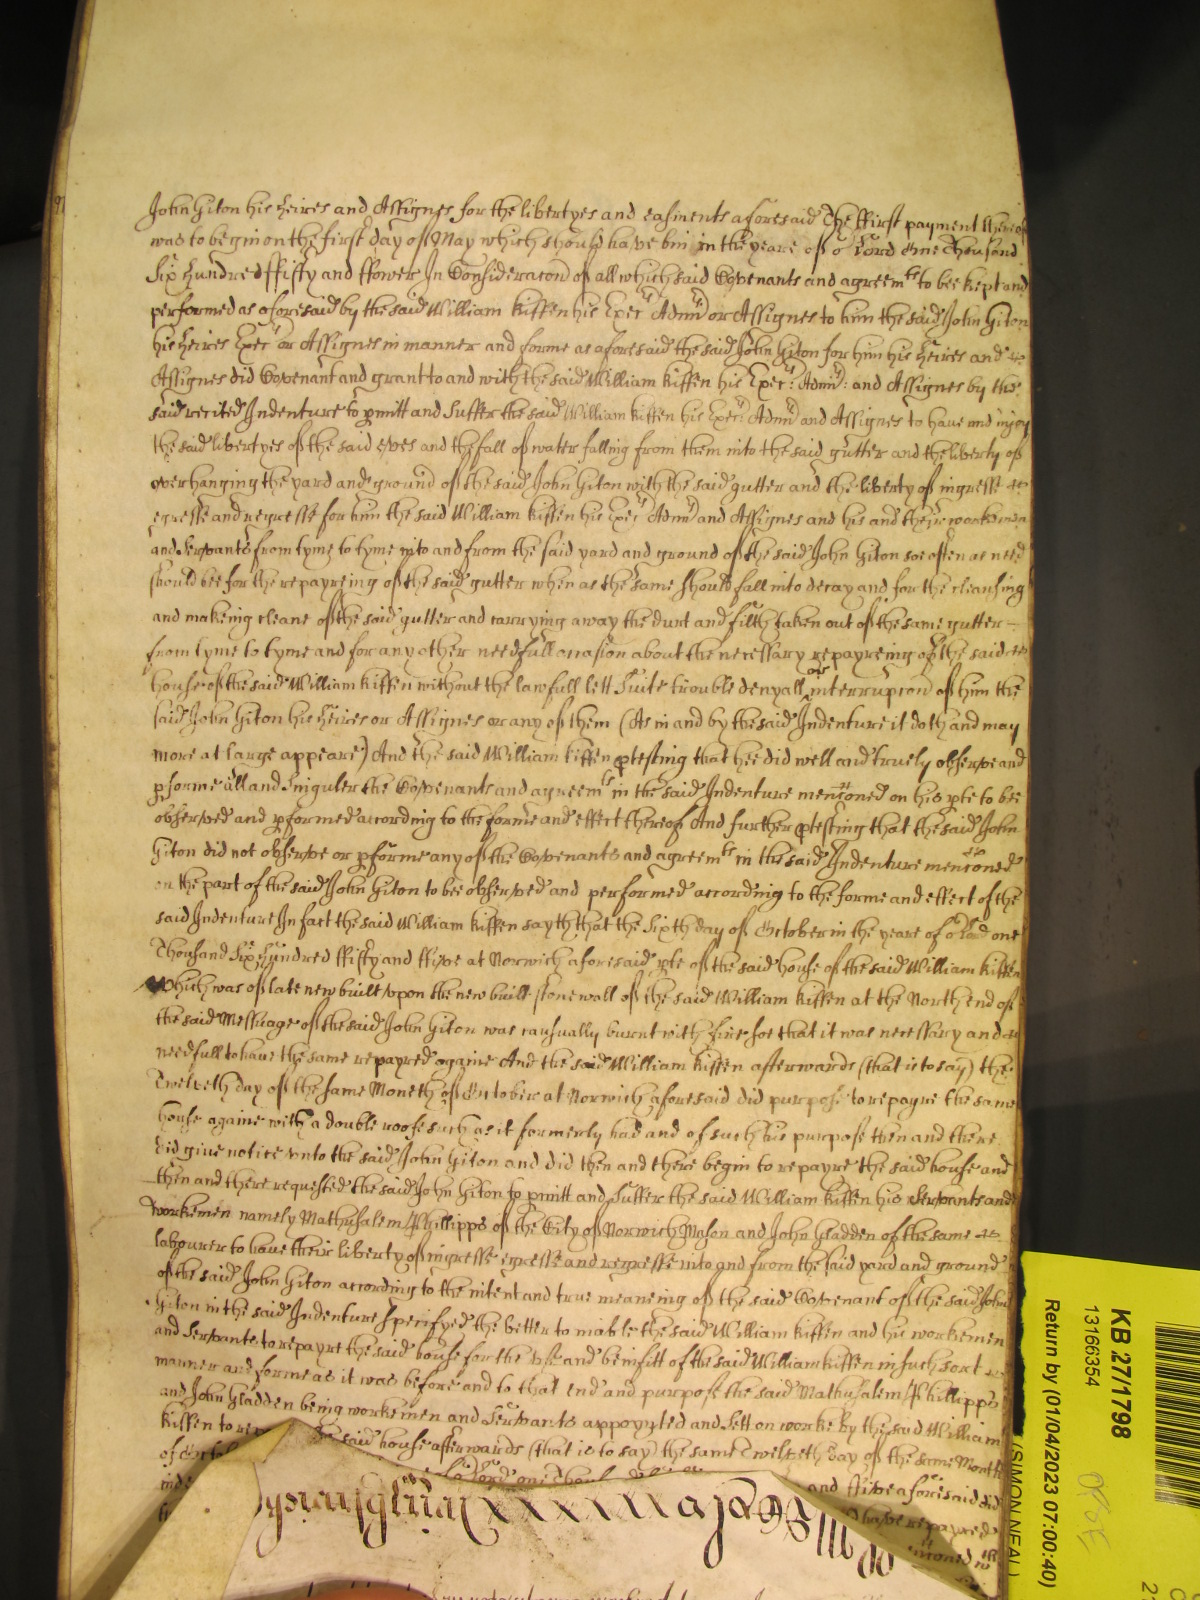 John Giton his heires and Assignes for the libertyes and easments aforesaid The ffirst payment thereof
was to begin on the first day of May which should have bin in the yeare of or Lord One Thousand
Six hundred ffifty and ffower In Consideracon of all which said Covenants and agreemts to bee kept and
performed as aforesaid by the said William Kiffen his Execrs Admrs or Assignes to him the said John Giton
his heires Execrs or Assignes in manner and forme as aforesaid the said John Giton for him his heires and
Assignes did Covenant and grant to and with the said William Kiffen his Execrs: Admrs: and Assignes by the
said recited Indenture to pmitt and Suffer the said William Kiffen his Execrs Admrs and Assignes to have and injoy
the said libertyes of the said eves and the fall of water falling from them into the said gutter and the liberty of
overhanging the yard and ground of the said John Giton with the said gutter and the liberty of ingresse
egresse and regresse for him the said William Kiffen his Execrs Admrs and Assignes and his and their workmen
and Servants from tyme to tyme into and from the said yard and ground of the said John Giton soe often as need
should bee for the repayreing of the said gutter when as the same should fall into decay and for the cleansing
and makeing cleane of the said gutter and carrying away the durt and filth taken out of the same gutter
from tyme to tyme and for any other needfull occasion about the necessary repayreing of the said
house of the said William Kiffen without the lawfull lett Suite trouble denyall or interrupcon of him the
said John Giton his heires or Assignes or any of them (As in and by the said Indenture it doth and may
more at large appeare) And the said William Kiffen ptesting that hee did well and truely observe and
pforme all and Singuler the Covenants and agreemts in the said Indenture mencioned on his pte to bee
observed and pformed according to the forme and effect thereof And further ptesting that the said John
Giton did not observe or pforme any of the Covenants and agreemts in the said Indenture mencioned
on the part of the said John Giton to bee observed and performed according to the forme and effect of the
said Indenture In fact the said William Kiffen sayth that the Sixth day of October in the yeare of or Lord one
Thousand Six hundred ffifty and ffive at Norwich aforesaid pte of the said house of the said William Kiffen
Which was of late new built upon the new built stone wall of the said William Kiffen at the North end of
the said Messuage of the said John Giton was casually burnt with fire soe that it was necessary and
needfull to have the same repayred againe And the said William Kiffen afterwards (that is to say) the
Twelveth day of the same Moneth of October at Norwich aforesaid did purpose to repayre the same
house againe with a double roofe such as it formerly had and of such his purpose then and there
did give notice unto the said John Giton and did then and there begin to repayre the said house and
then and there requested the said John Giton to pmitt and Suffer the said William Kiffen his Servants and
workemen namely Mathusalem Phillipps of the City of Norwich Mason and John Gladden of the same
labourer to have their liberty of ingresse egresse and regresse into and from the said yard and ground
of the said John Giton according to the intent and true meaneing of the said Covenant of the said John
Giton in the said Indenture specifyed the better to inable the said William Kiffen and his workemen
and Servants to repayre the said house for the use and beinfitt of the said William Kiffen in such sort
manner and forme as it was before and to that end and purpose the said Mathusalem Phillipps
and John Gladden being workemen and Servants appoynted and sett on worke by the said William
Kiffen to the said house afterwards (that is to say) the same Twelveth day of the same Moneth
of and ffive aforesaid did
have repayred
KB 27/1798
13166354
Return by (01/04/2023 07:00:40)
(SIMON NEAL)